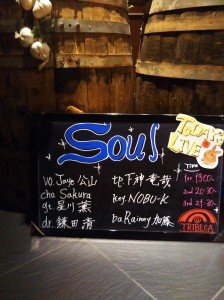 Soul
TODAY'S
LIVE
Vo. Jaye 公山
cho Sakura
gt. 星川 薫
dr. 鎌田 清
Key NOBU-K
ba Rainny 加藤
Time
1st 19:00~
2nd 20:30~
3rd 21:30~
TRIBECA